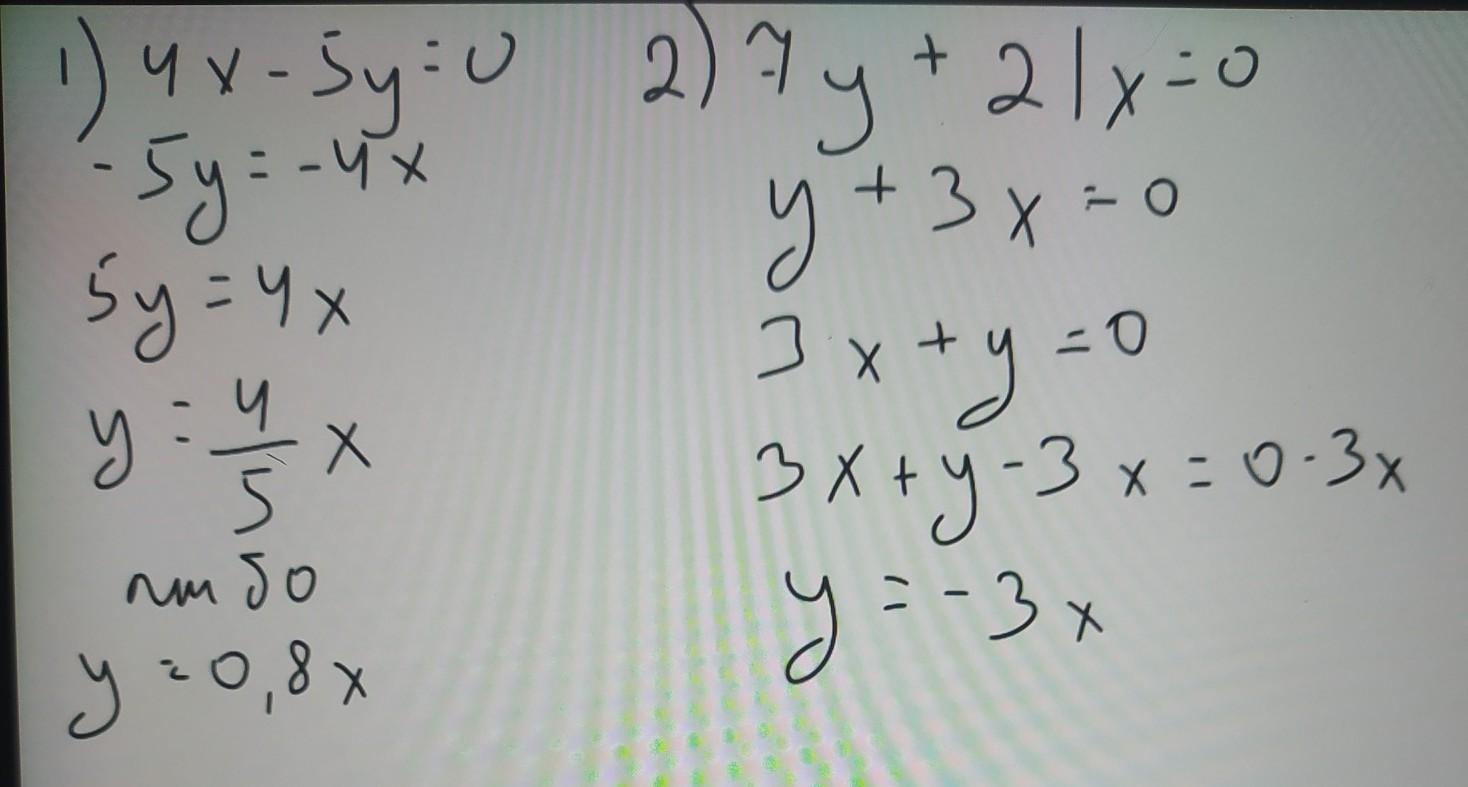 1) 4x - 5y = 0
- 5y = - 4x
5y = 4x
y = 4/5 x
либо
y = 0,8x
2) 7y + 21x = 0
y + 3x = 0
3x + y = 0
3x + y - 3x = 0 - 3x
y = - 3x